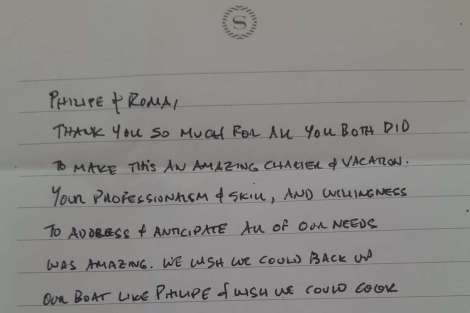 S
PHILIPE & ROMA,
THANK YOU SO MUCH FOR ALL YOU BOTH DID
TO MAKE THIS AN AMAZING CHARTER & VACATION.
YOUR PROFESSIONALISM & SKILL, AND WILLINGNESS
TO ADDRESS & ANTICIPATE ALL OF OUR NEEDS
WAS AMAZING. WE WISH WE COULD BACK UP
OUR BOAT LIKE PHILIPE & WISH WE COULD COOK